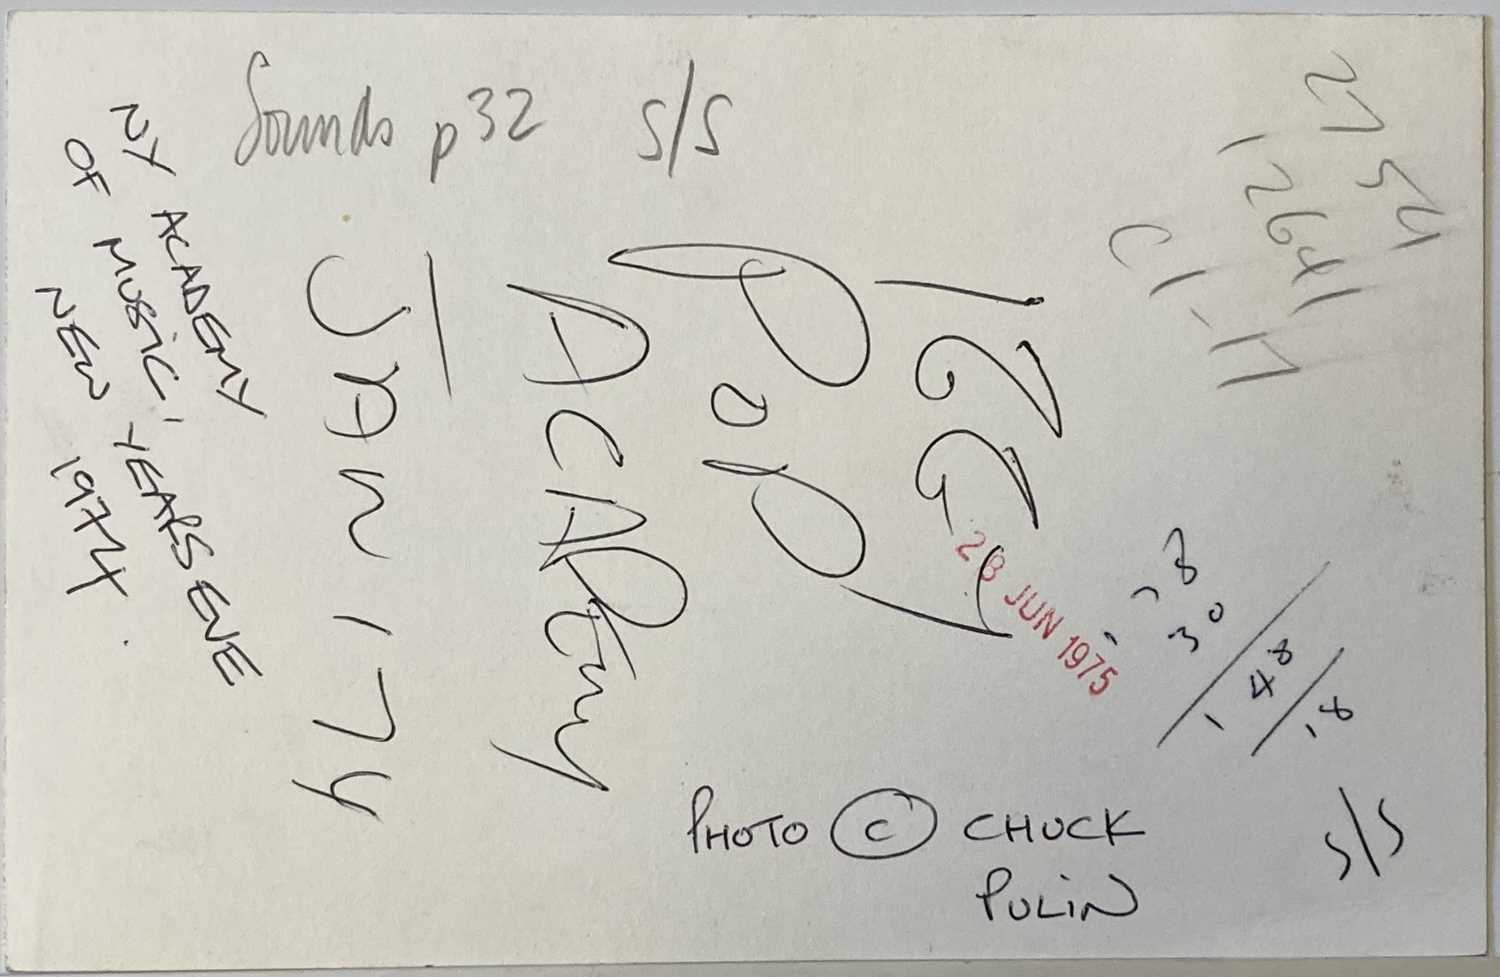 Sounds p32 S/S
NY ACADEMY
OF MUSIC,
NEW YEARS EVE
1974.
IGGY
POP
ACADEMY
JAN 1 74
28 JUN 1975
78
30
148
18
PHOTO © CHUCK
PULIN
S/S